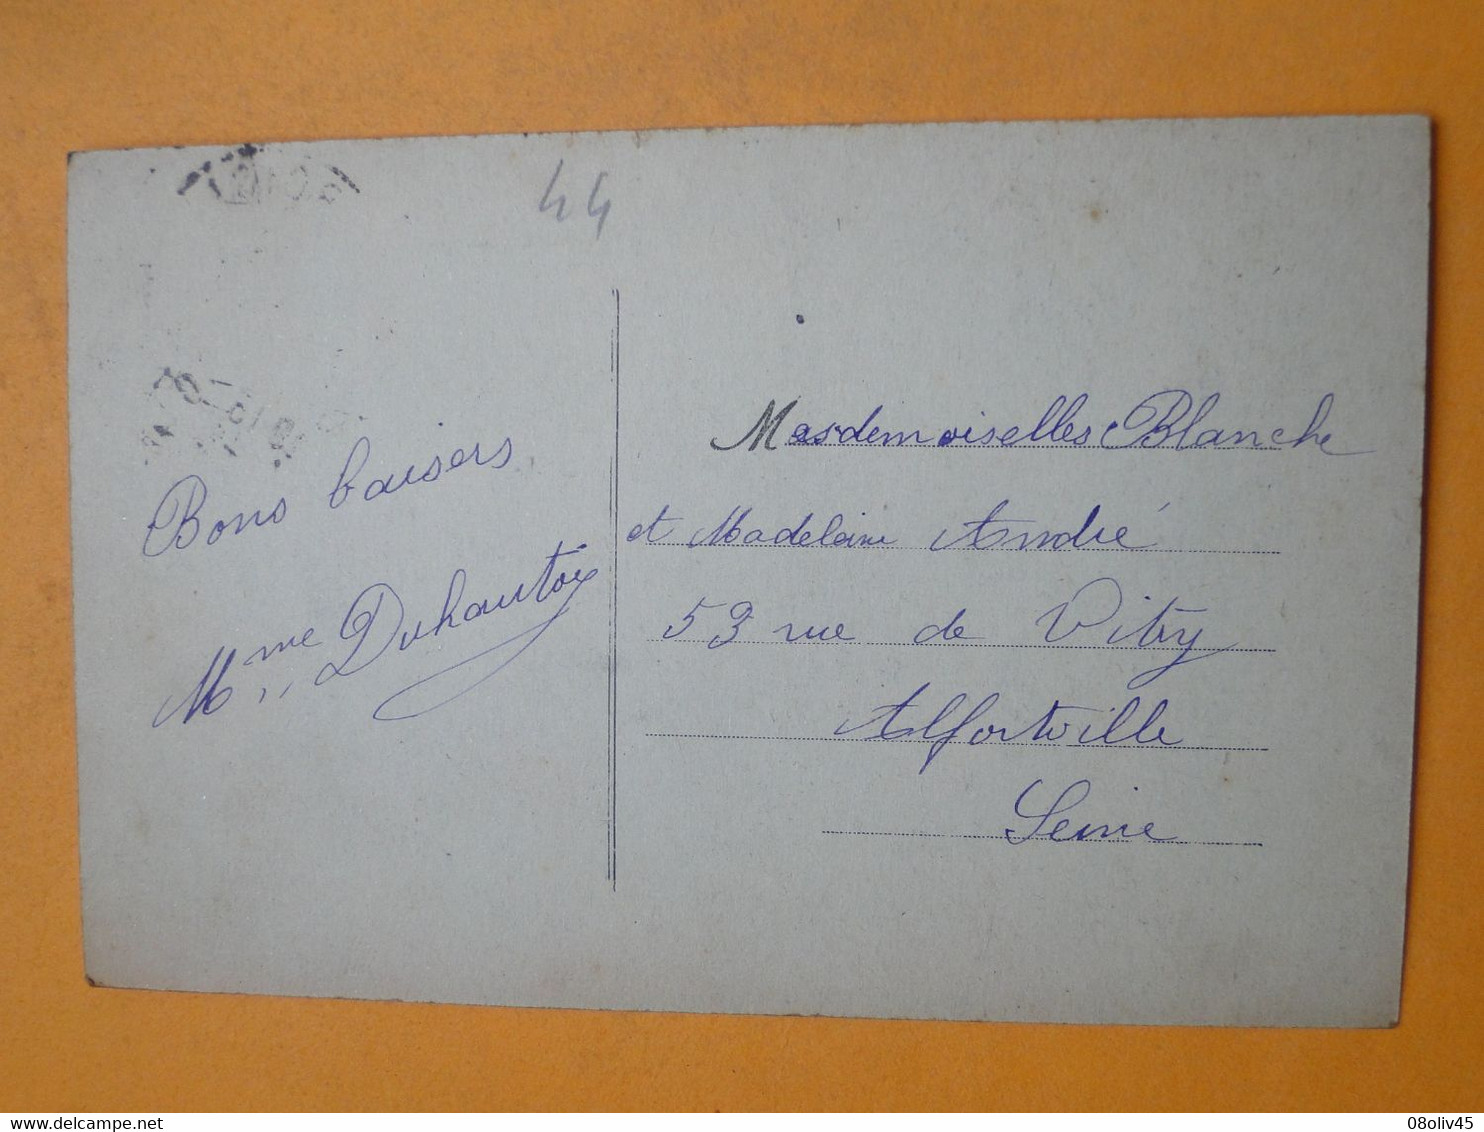 44
Bons baisers
Mme Duhautoy
Mesdemoiselles Blanche
et Madeleine André
53 rue de Vitry
Alfortville
Seine
delcampe.net
08oliv45